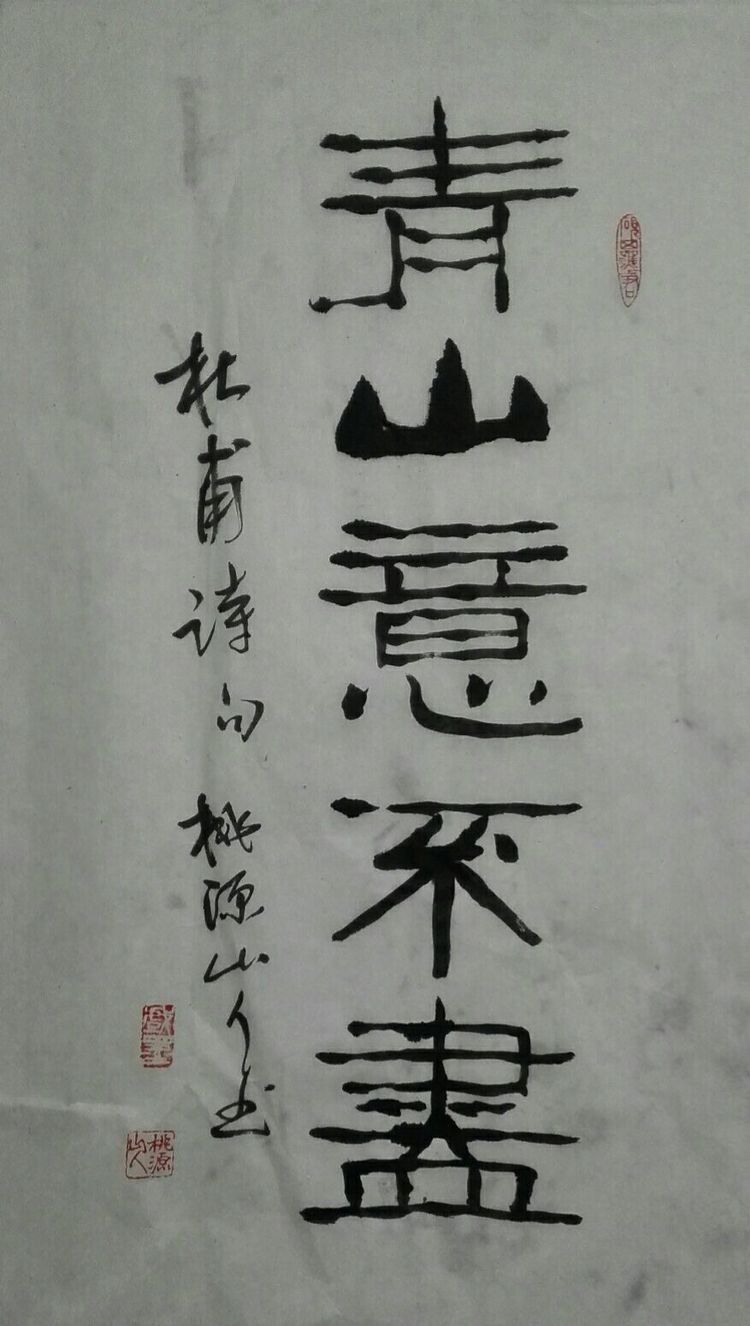 青山意不盡
杜甫诗句 桃源山人书
桃源山人